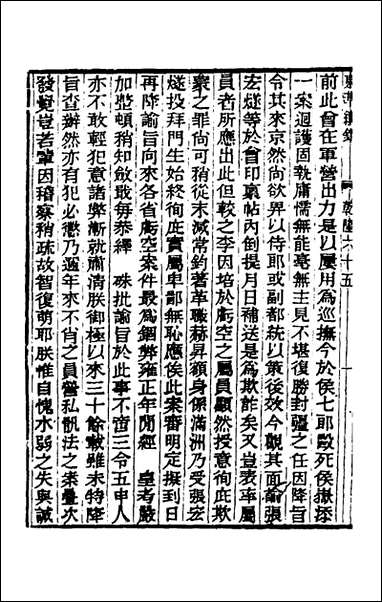 東華續錄 乾隆六十五 一
前此曾在軍營出力是以屢用爲巡撫今於侯七郞毆死侯嶽添
一案迴護固執庸懦無能毫無主見不堪復勝封疆之任因降旨
令其來京然尚欲畀以侍郞或副都統以策後效今觀其面諭張
宏燧等於會印稟帖內倒提月日補送是爲欺詐矣又豈表率屬
員者所應出此但較之李因培於虧空之屬員顯然授意徇庇欺
蒙之罪尚可稍從末減常鈞著革職赫昇額身係滿洲乃受張宏
燧投拜門生始終徇庇實屬卑鄙無恥應俟此案審明定擬到日
再降諭旨向來各省虧空案件最爲錮弊雍正年間經 皇考嚴
加整頓稍知斂戢每恭繹 硃批諭旨於此事不啻三令五申人
亦不敢輕犯意諸弊漸就肅清朕御極以來三十餘載雖未特降
旨查辦然亦有犯必懲乃邇年來不肖之員營私骫法之案疊次
發覺豈若輩因稽察稍疏故智復萌耶朕惟自愧水弱之失與誠